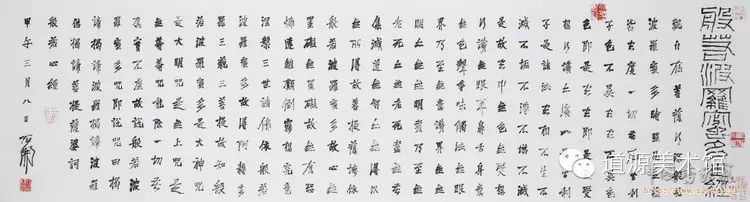 般若波羅蜜多心經
觀自在菩薩行深般若
波羅蜜多時照見五蘊
皆空度一切苦厄舍利
子色不異空空不異色
色即是空空即是色受
想行識亦復如是舍利
子是諸法空相不生不
滅不垢不淨不增不減
是故空中無色無受想
行識無眼耳鼻舌身意
無色聲香味觸法無眼
界乃至無意識界無無
明亦無無明盡乃至無
老死亦無老死盡無苦
集滅道無智亦無得以
無所得故菩提薩埵依
般若波羅蜜多故心無
罣礙無罣礙故無有恐
怖遠離顛倒夢想究竟
涅槃三世諸佛依般若
波羅蜜多故得阿耨多
羅三藐三菩提故知般
若波羅蜜多是大神咒
是大明咒是無上咒是
無等等咒能除一切苦
真實不虛故說般若波
羅蜜多咒即說咒曰揭
諦揭諦波羅揭諦波羅
僧揭諦菩提薩婆訶
般若心經
甲午三月八日
道源美术馆